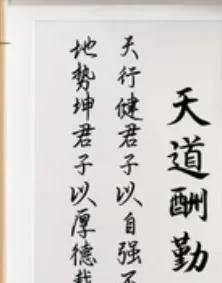 天道酬勤
天行健君子以自强不
地势坤君子以厚德载